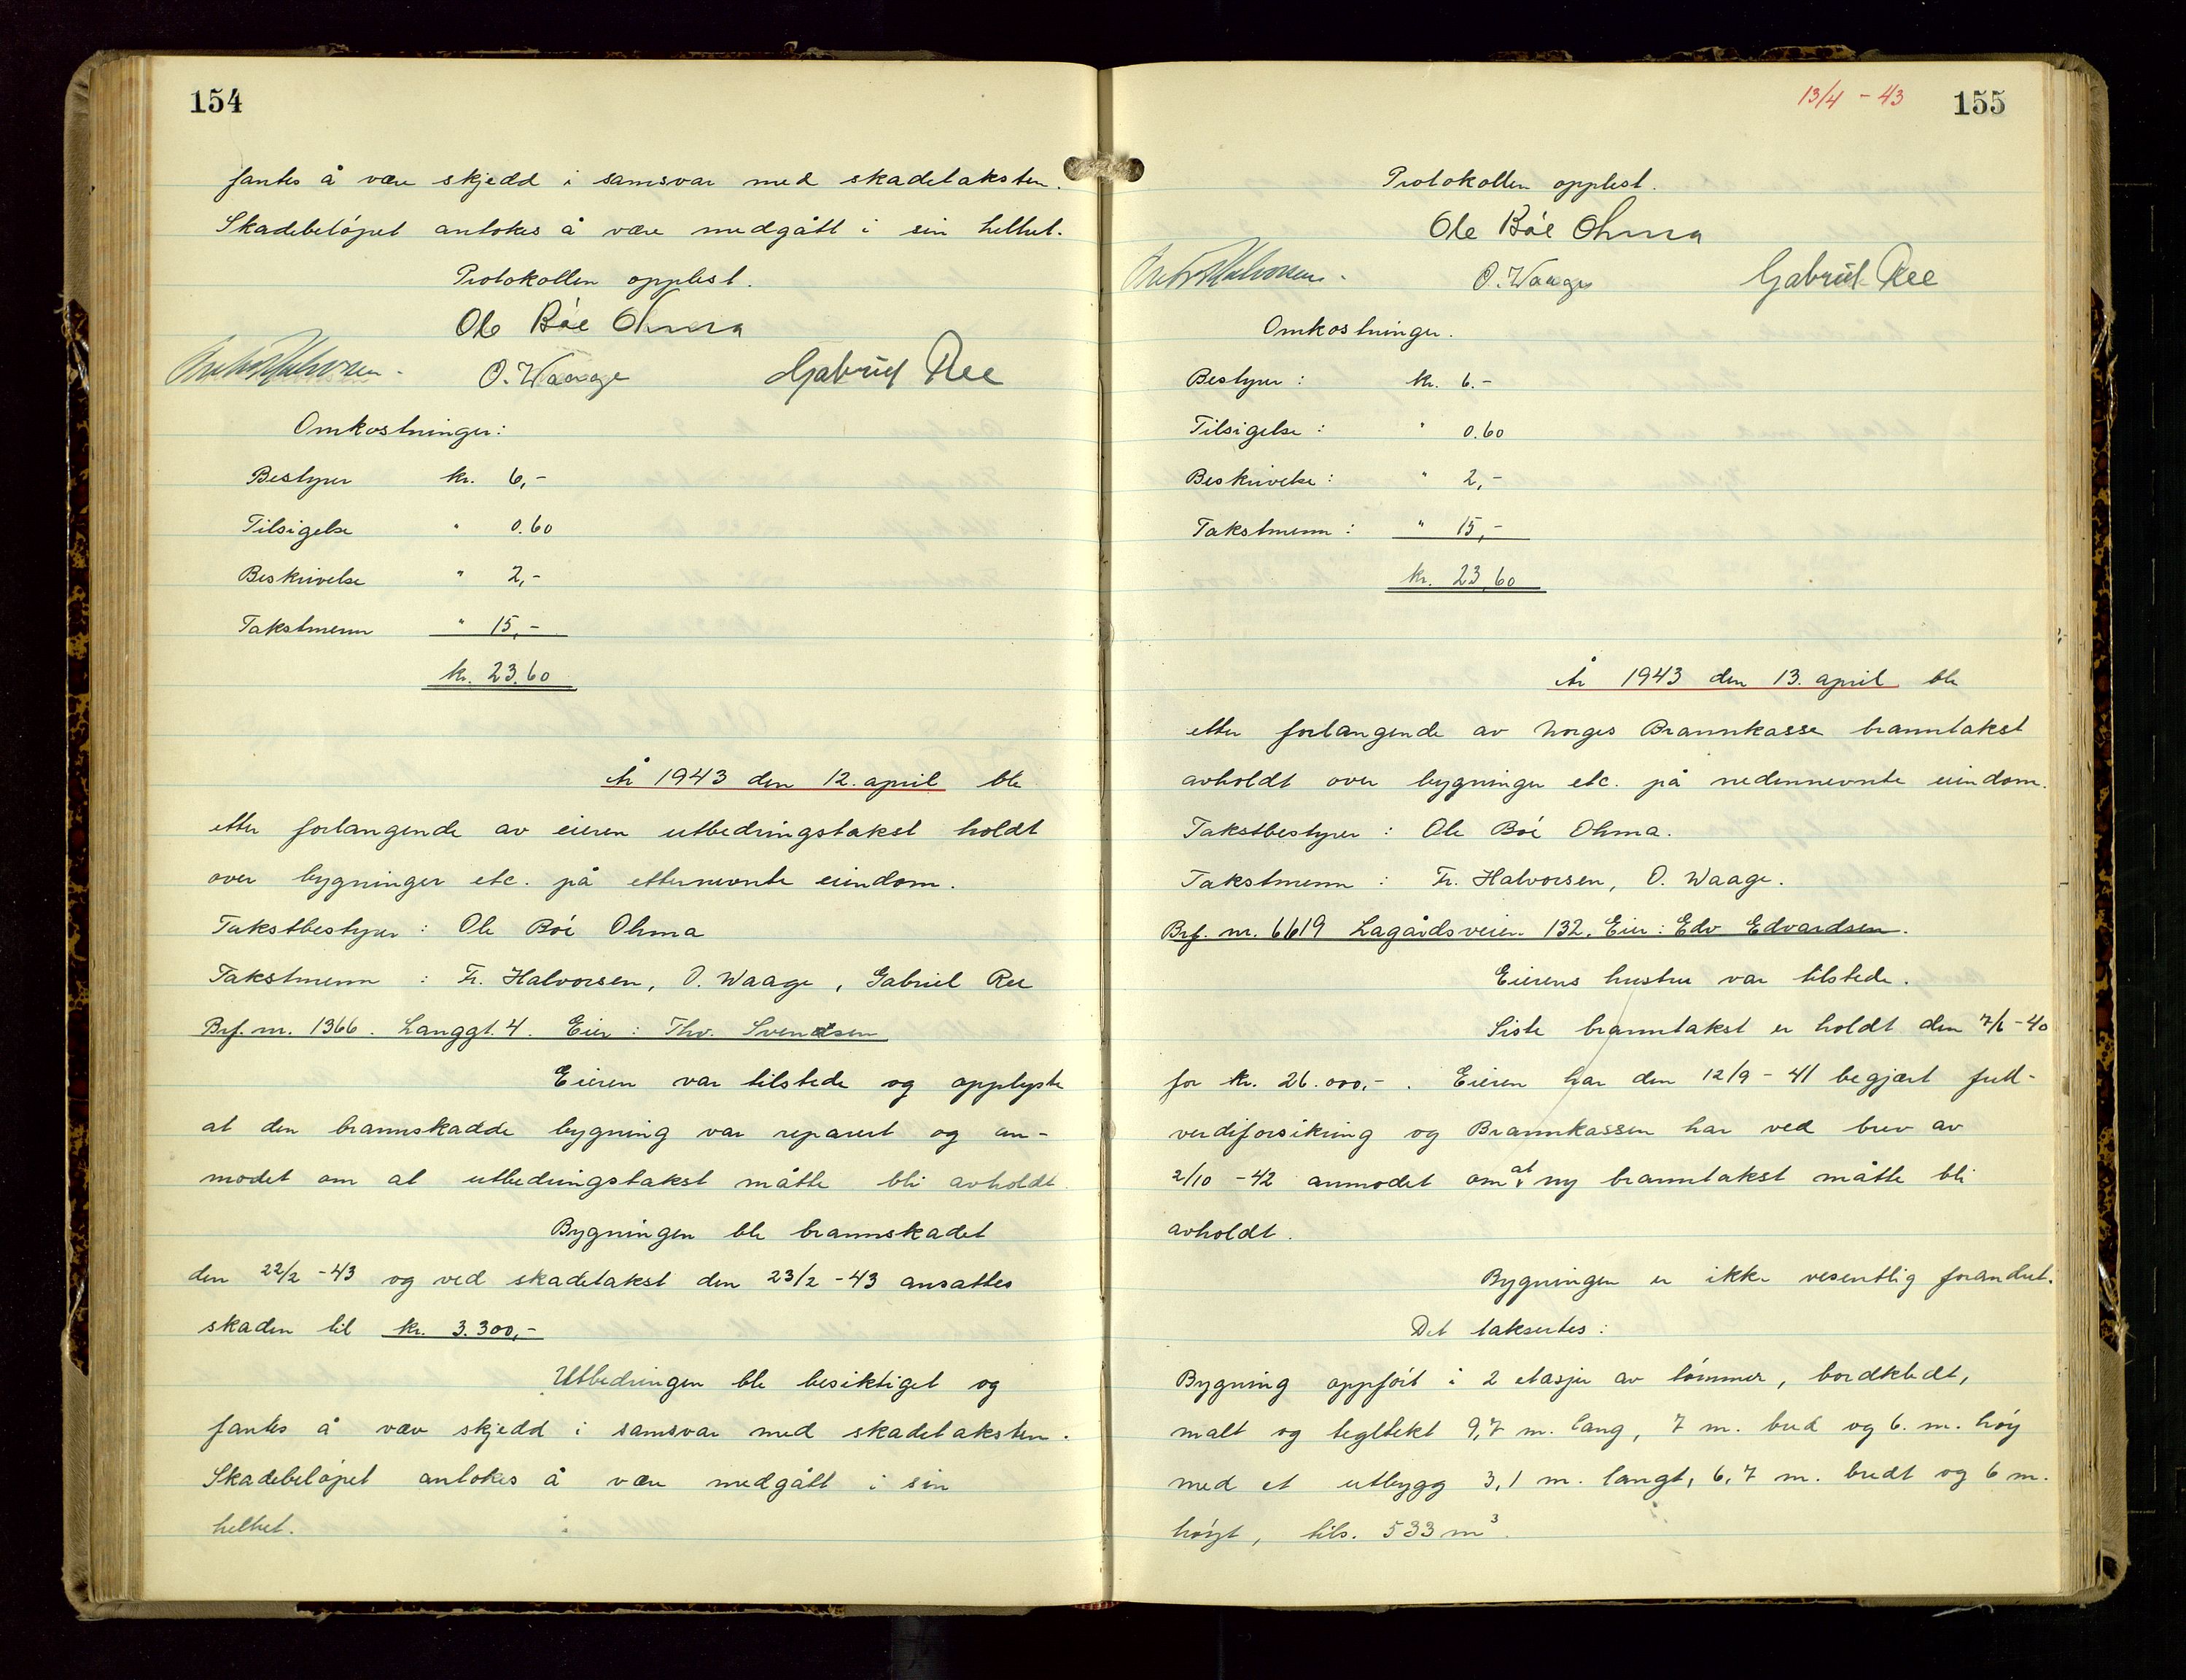 154
fantes å være skjedd i samsvar med skadetaksten.
Skadebeløpet antokes å være medgått i sin helhet.
Protokollen opplest.
Ole Bøe Ohma
O. Waage Gabriel Ree
Omkostninger:
Bestyrer kr. 6,-
Tilsigelse " 0.60
Beskrivelse " 2,-
Takstmenn " 15,-
kr. 23.60
År 1943 den 12. april ble
etter forlangende av eieren utbedringstakst holdt
over bygninger etc. på etternevnte eiendom.
Takstbestyrer : Ole Bøe Ohma
Takstmenn : Fr. Halvorsen, O. Waage, Gabriel Ree
Brf. nr. 1366. Langgt. 4. Eier : Thv. Svendsen
Eieren var tilstede og opplyste
at den brannskadde bygning var reparert og an-
modet om at utbedringstakst måtte bli avholdt.
Bygningen ble brannskadet
den 22/2 -43 og ved skadetakst den 23/2 -43 ansattes
skaden til kr. 3.300,-
Utbedringen ble besiktiget og
fantes å være skjedd i samsvar med skadetaksten.
Skadebeløpet antokes å være medgått i sin
helhet.
13/4 - 43 155
Protokollen opplest.
Ole Bøe Ohma
O. Waage Gabriel Ree
Omkostninger.
Bestyrer : kr. 6.-
Tilsigelse : " 0.60
Beskrivelse : " 2,-
Takstmenn : " 15,-
kr. 23,60
År 1943 den 13. april ble
etter forlangende av Norges Brannkasse branntakst
avholdt over bygninger etc. på nedennevnte eiendom.
Takstbestyrer : Ole Bøe Ohma.
Takstmenn : Fr. Halvorsen, O. Waage.
Brf. nr. 6619 Lagårdsveien 132. Eier : Edv Edvardsen.
Eierens hustru var tilstede.
Siste branntakst er holdt den 7/6 -40
for kr. 26.000,-. Eieren har den 12/9 - 41 begjært full-
verdiforsikring og Brannkassen har ved brev av
2/10 -42 anmodet om at ny branntakst måtte bli
avholdt.
Bygningen er ikke vesentlig forandret.
Det takseres:
Bygning oppført i 2 etasjer av tømmer, bordkledt,
malt og tegltekt 9,7 m. lang, 7 m. bred og 6. m. høy
med et utbygg 3,1 m. langt, 6,7 m. bredt og 6 m.
høyt, tils. 533 m³.